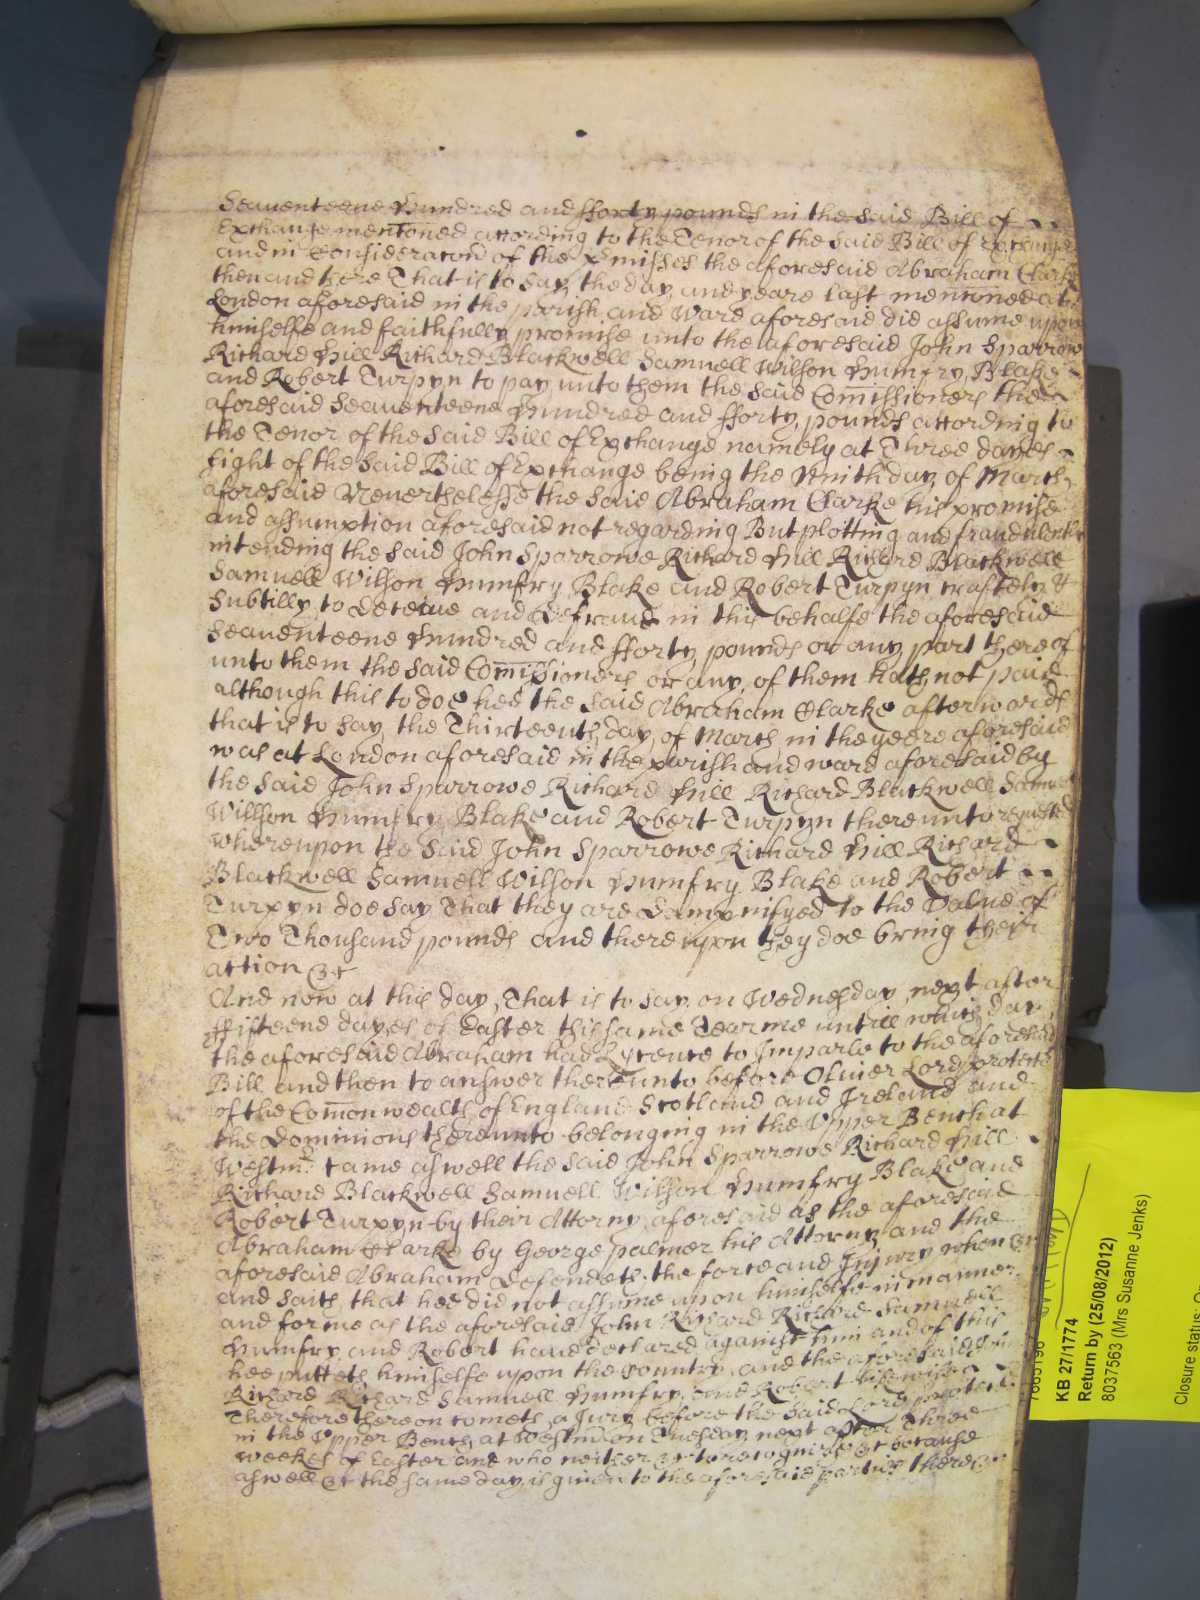 Seauenteene Hundred and fforty pounds in the said Bill of
Exchange mentoned according to the Tenor of the said Bill of Exchange
and in Consideracon of the p'misses the aforesaid Abraham Clarke
then and there That is to say the day and yeare last mentioned at
London aforesaid in the parish and Ward aforesaid did assume upon
himselfe and faithfully promise unto the aforesaid John Sparrow
Richard Hill Richard Blackwell Samuell Wilson Humfry Blake
and Robert Turpyn to pay unto them the said Comissioners the
aforesaid Seauenteene Hundred and fforty pounds according to
the Tenor of the said Bill of Exchange namely at Three dayes
sight of the said Bill of Exchange being the Ninth day of March
aforesaid Neverthelesse the said Abraham Clarke his promise
and assumption aforesaid not regarding But plotting and fraudulently
intending the said John Sparrowe Richard Hill Richard Blackwell
Samuell Wilson Humfry Blake and Robert Turpyn craftely &
Subtilly to deceiue and defraud in this behalfe the aforesaid
Seauenteene Hundred and fforty pounds or any part thereof
unto them the said Comissioners or any of them hath not paid
although this to doe hee the said Abraham Clarke afterwards
that is to say the Thirteenth day of March in the yeere aforesaid
was at London aforesaid in the parish and ward aforesaid by
the said John Sparrowe Richard Hill Richard Blackwell Samuell
Willson Humfry Blake and Robert Turpyn thereunto requested
whereupon the said John Sparrowe Richard Hill Richard
Blackwell Samuell Wilson Humfry Blake and Robert
Turpyn doe say That they are dampnifyed to the Value of
Two Thousand pounds and thereupon they doe bring their
action &c
And now at this day, That is to say on Wednesday next after
ffifteene dayes of Easter this same Tearme untill which day
the aforesaid Abraham had Lycence to Imparle to the aforesaid
Bill and then to answer thereunto before Oliuer Lord protector
of the Comonwealth of England Scotland and Ireland and
the Dominions thereunto belonging in the Vpper Bench at
Westm'r came aswell the said John Sparrowe Richard Hill
Richard Blackwell Samuell Wilson Humfry Blake and
Robert Turpyn by their Attorny aforesaid as the aforesaid
Abraham Clarke by George palmer his Attorny and the
aforesaid Abraham defendeth the force and Injury when &c
and saith that hee did not assume upon himselfe in manner
and forme as the aforesaid John Richard Richard Samuell
Humfry and Robert haue declared against him and of this
hee putteth himselfe upon the Country and the aforesaid John
Richard Richard Samuell Humfry and Robert likewise
Therefore thereon cometh a Jury before the said Lord protector
in the Vpper Bench at Westm' on Tuesday next after Three
weekes of Easter and who neither &c to recognise &c because
aswell &c the same day is given to the aforesaid parties there &c
KB 27/1774
Return by (25/08/2012)
8037563 (Mrs Susanne Jenks)
Closure status: